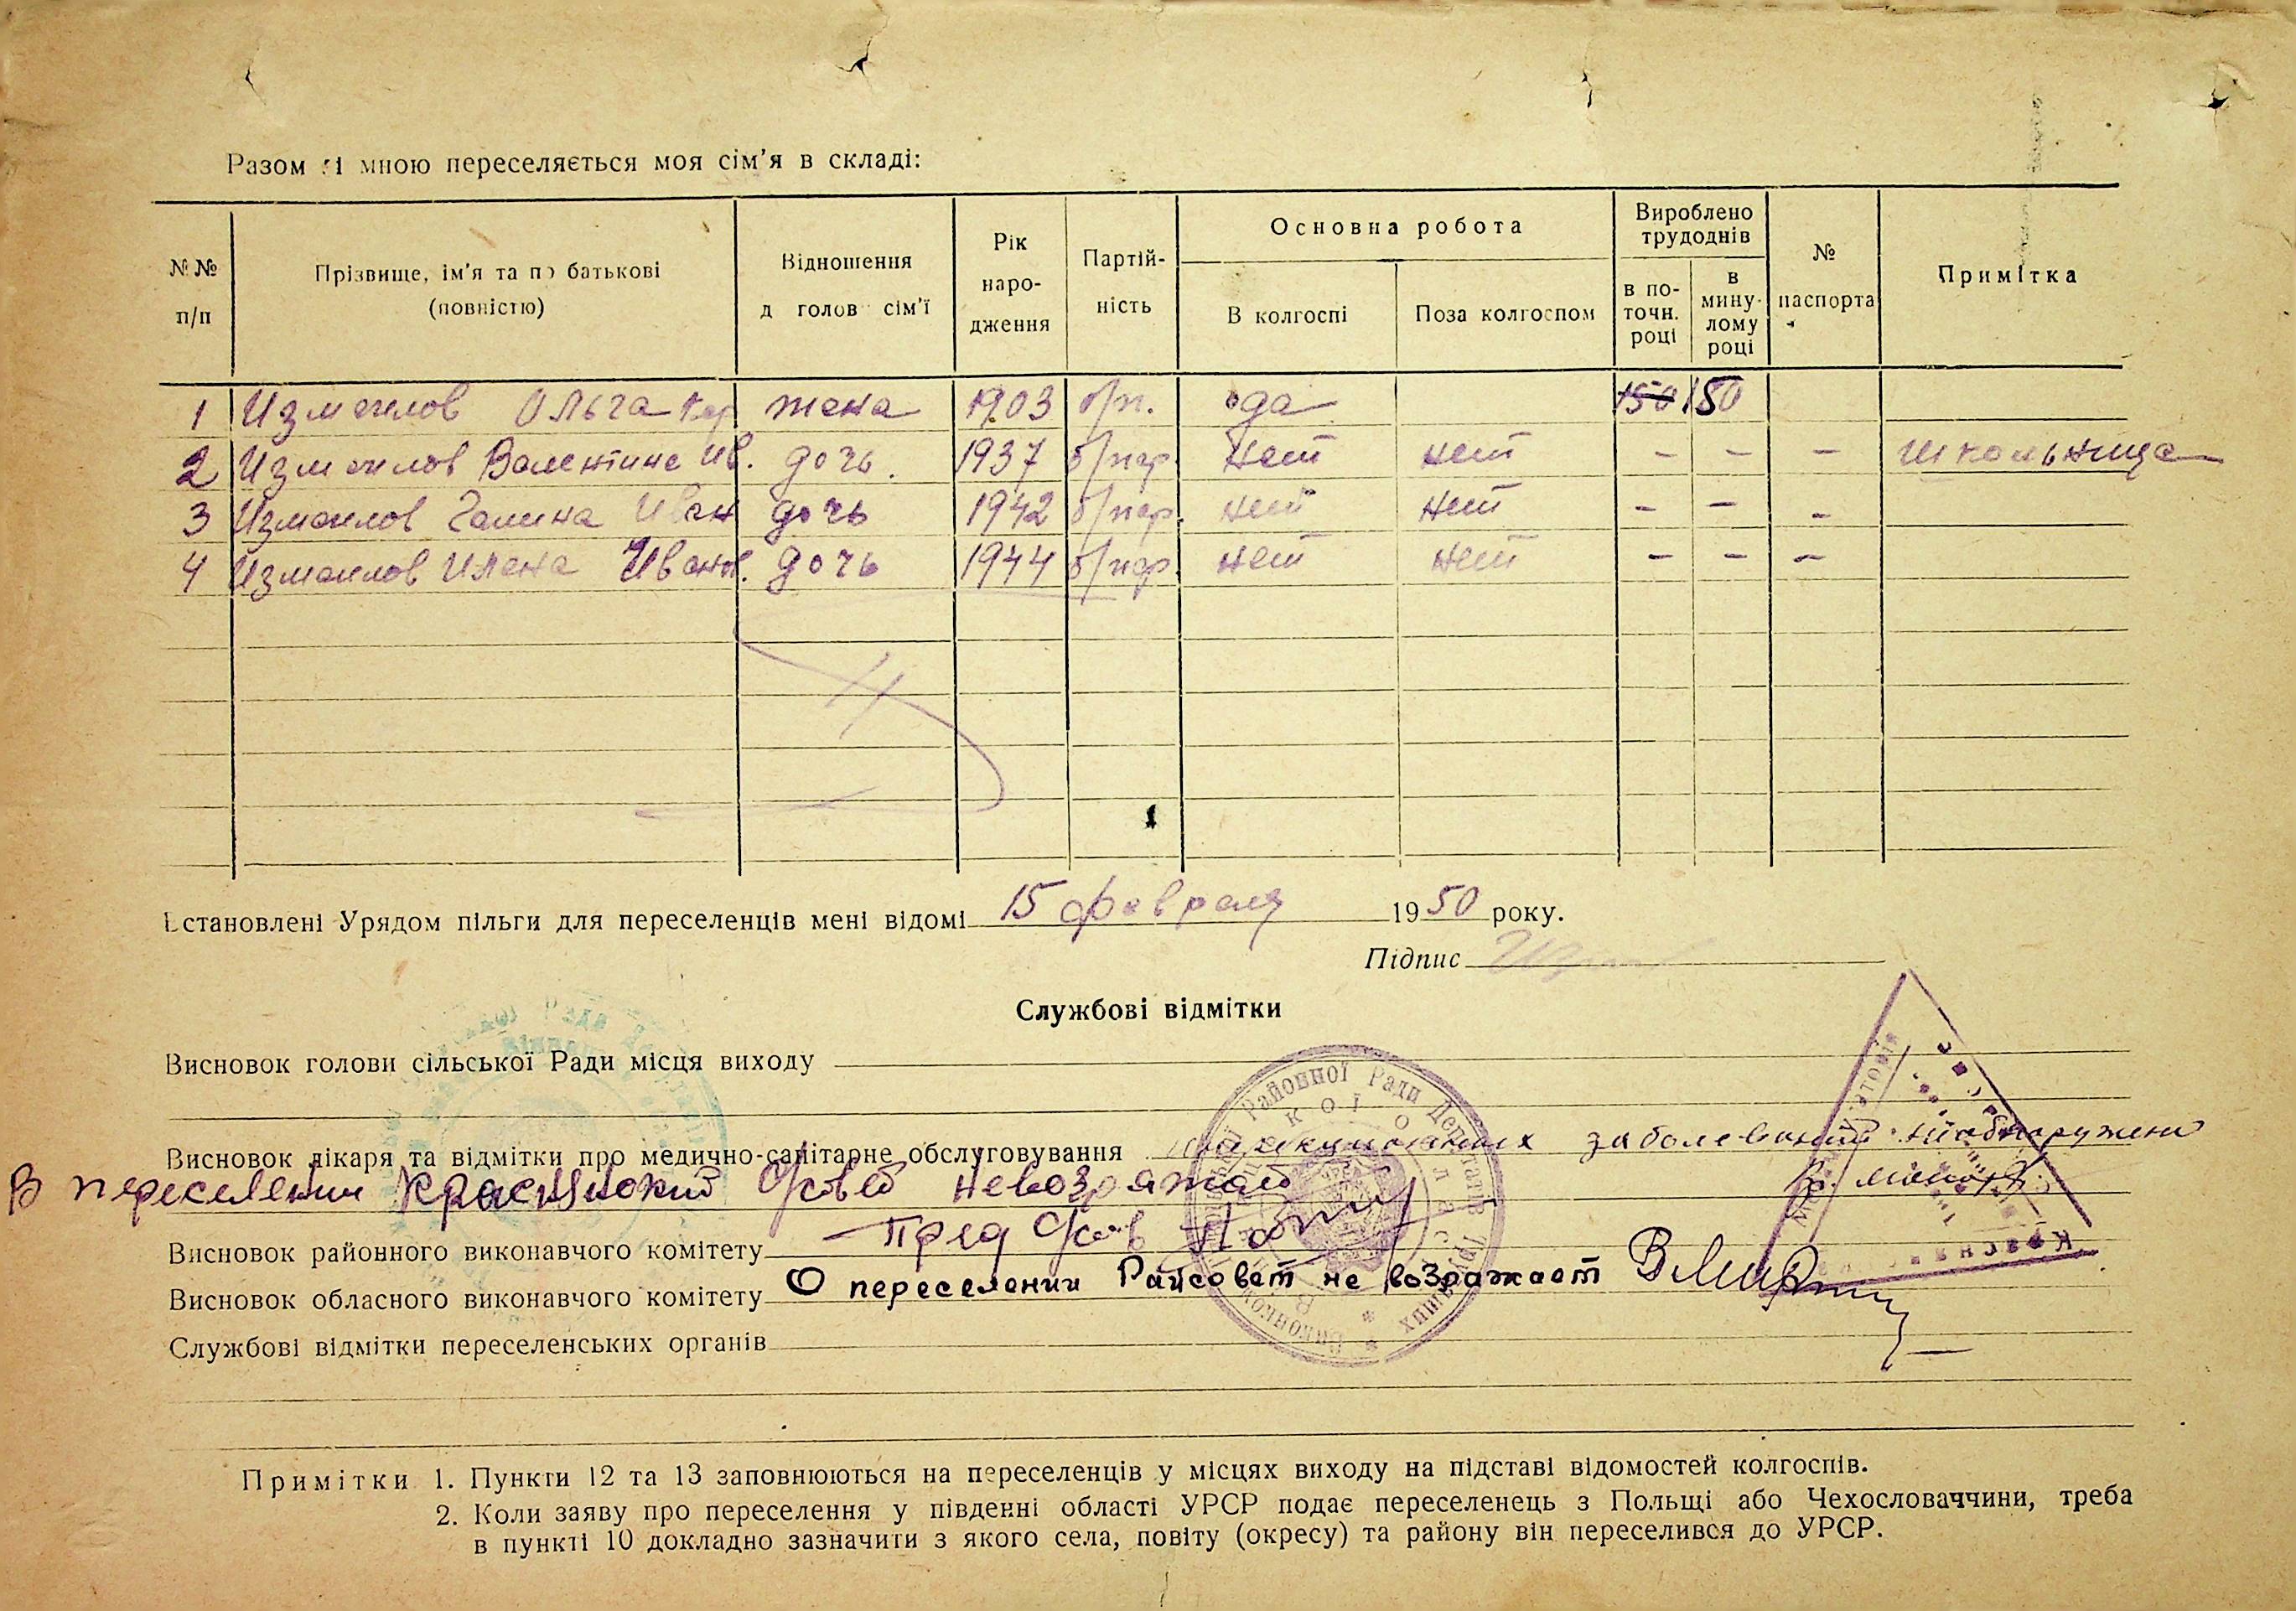 Разом зі мною переселяється моя сім'я в складі:
№№ п/п | Прізвище, ім'я та по батькові (повністю) | Відношення д голов сім'ї | Рік народження | Партійність | Основна робота | Вироблено трудоднів | № паспорта | Примітка
В колгоспі | Поза колгоспом | в поточн. році | в минулому році
1 Измаилов Ольга Гер жена 1903 б/п. да 150 150
2 Измаилов Валентина Ив. дочь. 1937 б/пар. нет нет – – – школьница
3 Измаилов Галина Иван дочь 1942 б/пар. нет нет – – –
4 Измаилов Илена Иванов. дочь 1944 б/пар. нет нет – – –
Встановлені Урядом пільги для переселенців мені відомі 15 февраля 1950 року.
Підпис
Службові відмітки
Висновок голови сільської Ради місця виходу
Висновок лікаря та відмітки про медично-санітарне обслуговування заболеваний
В переселении невозражает
Висновок районного виконавчого комітету Пред
Висновок обласного виконавчого комітету О переселении Райсовет не возражает
Службові відмітки переселенських органів
Районної Ради Депутатів Трудящих
Примітки 1. Пункти 12 та 13 заповнюються на переселенців у місцях виходу на підставі відомостей колгоспів.
2. Коли заяву про переселення у південні області УРСР подає переселенець з Польщі або Чехословаччини, треба
в пункті 10 докладно зазначити з якого села, повіту (окресу) та району він переселився до УРСР.